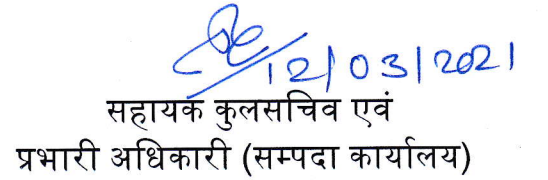 12/03/2021
सहायक कुलसचिव एवं
प्रभारी अधिकारी (सम्पदा कार्यालय)